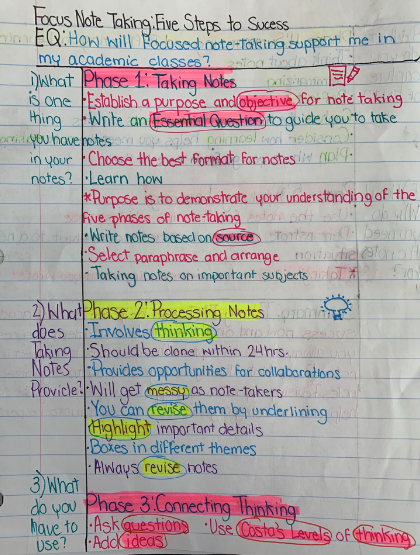 Focus Note Taking: Five Steps to Sucess
EQ: How will Focused note-taking support me in
my academic classes?
1) What is one thing you have in your notes?
Phase 1: Taking Notes
• Establish a purpose and objective for note taking
• Write an Essential Question to guide you to take
notes
• Choose the best format for notes
• Learn how
*Purpose is to demonstrate your understanding of the
five phases of note-taking
• Write notes based on source
• Select paraphrase and arrange
• Taking notes on important subjects
2) What does Taking Notes Provicle?
Phase 2: Processing Notes
• Involves thinking
• Should be done within 24hrs.
• Provides opportunities for collaborations
• Will get messy as note-takers
• You can revise them by underlining
Highlight important details
• Boxes in different themes
• Always revise notes
3) What do you have to use?
Phase 3: Connecting Thinking
• Ask questions • Use Costa's Levels of thinking
• Add ideas